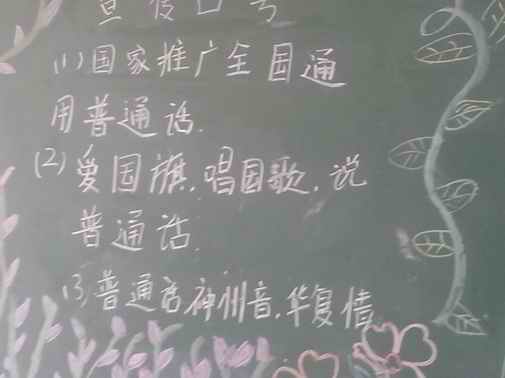 宣传口号
(1)国家推广全国通
用普通话.
(2)爱国旗,唱国歌,说
普通话.
(3)普通话神州音,华夏情